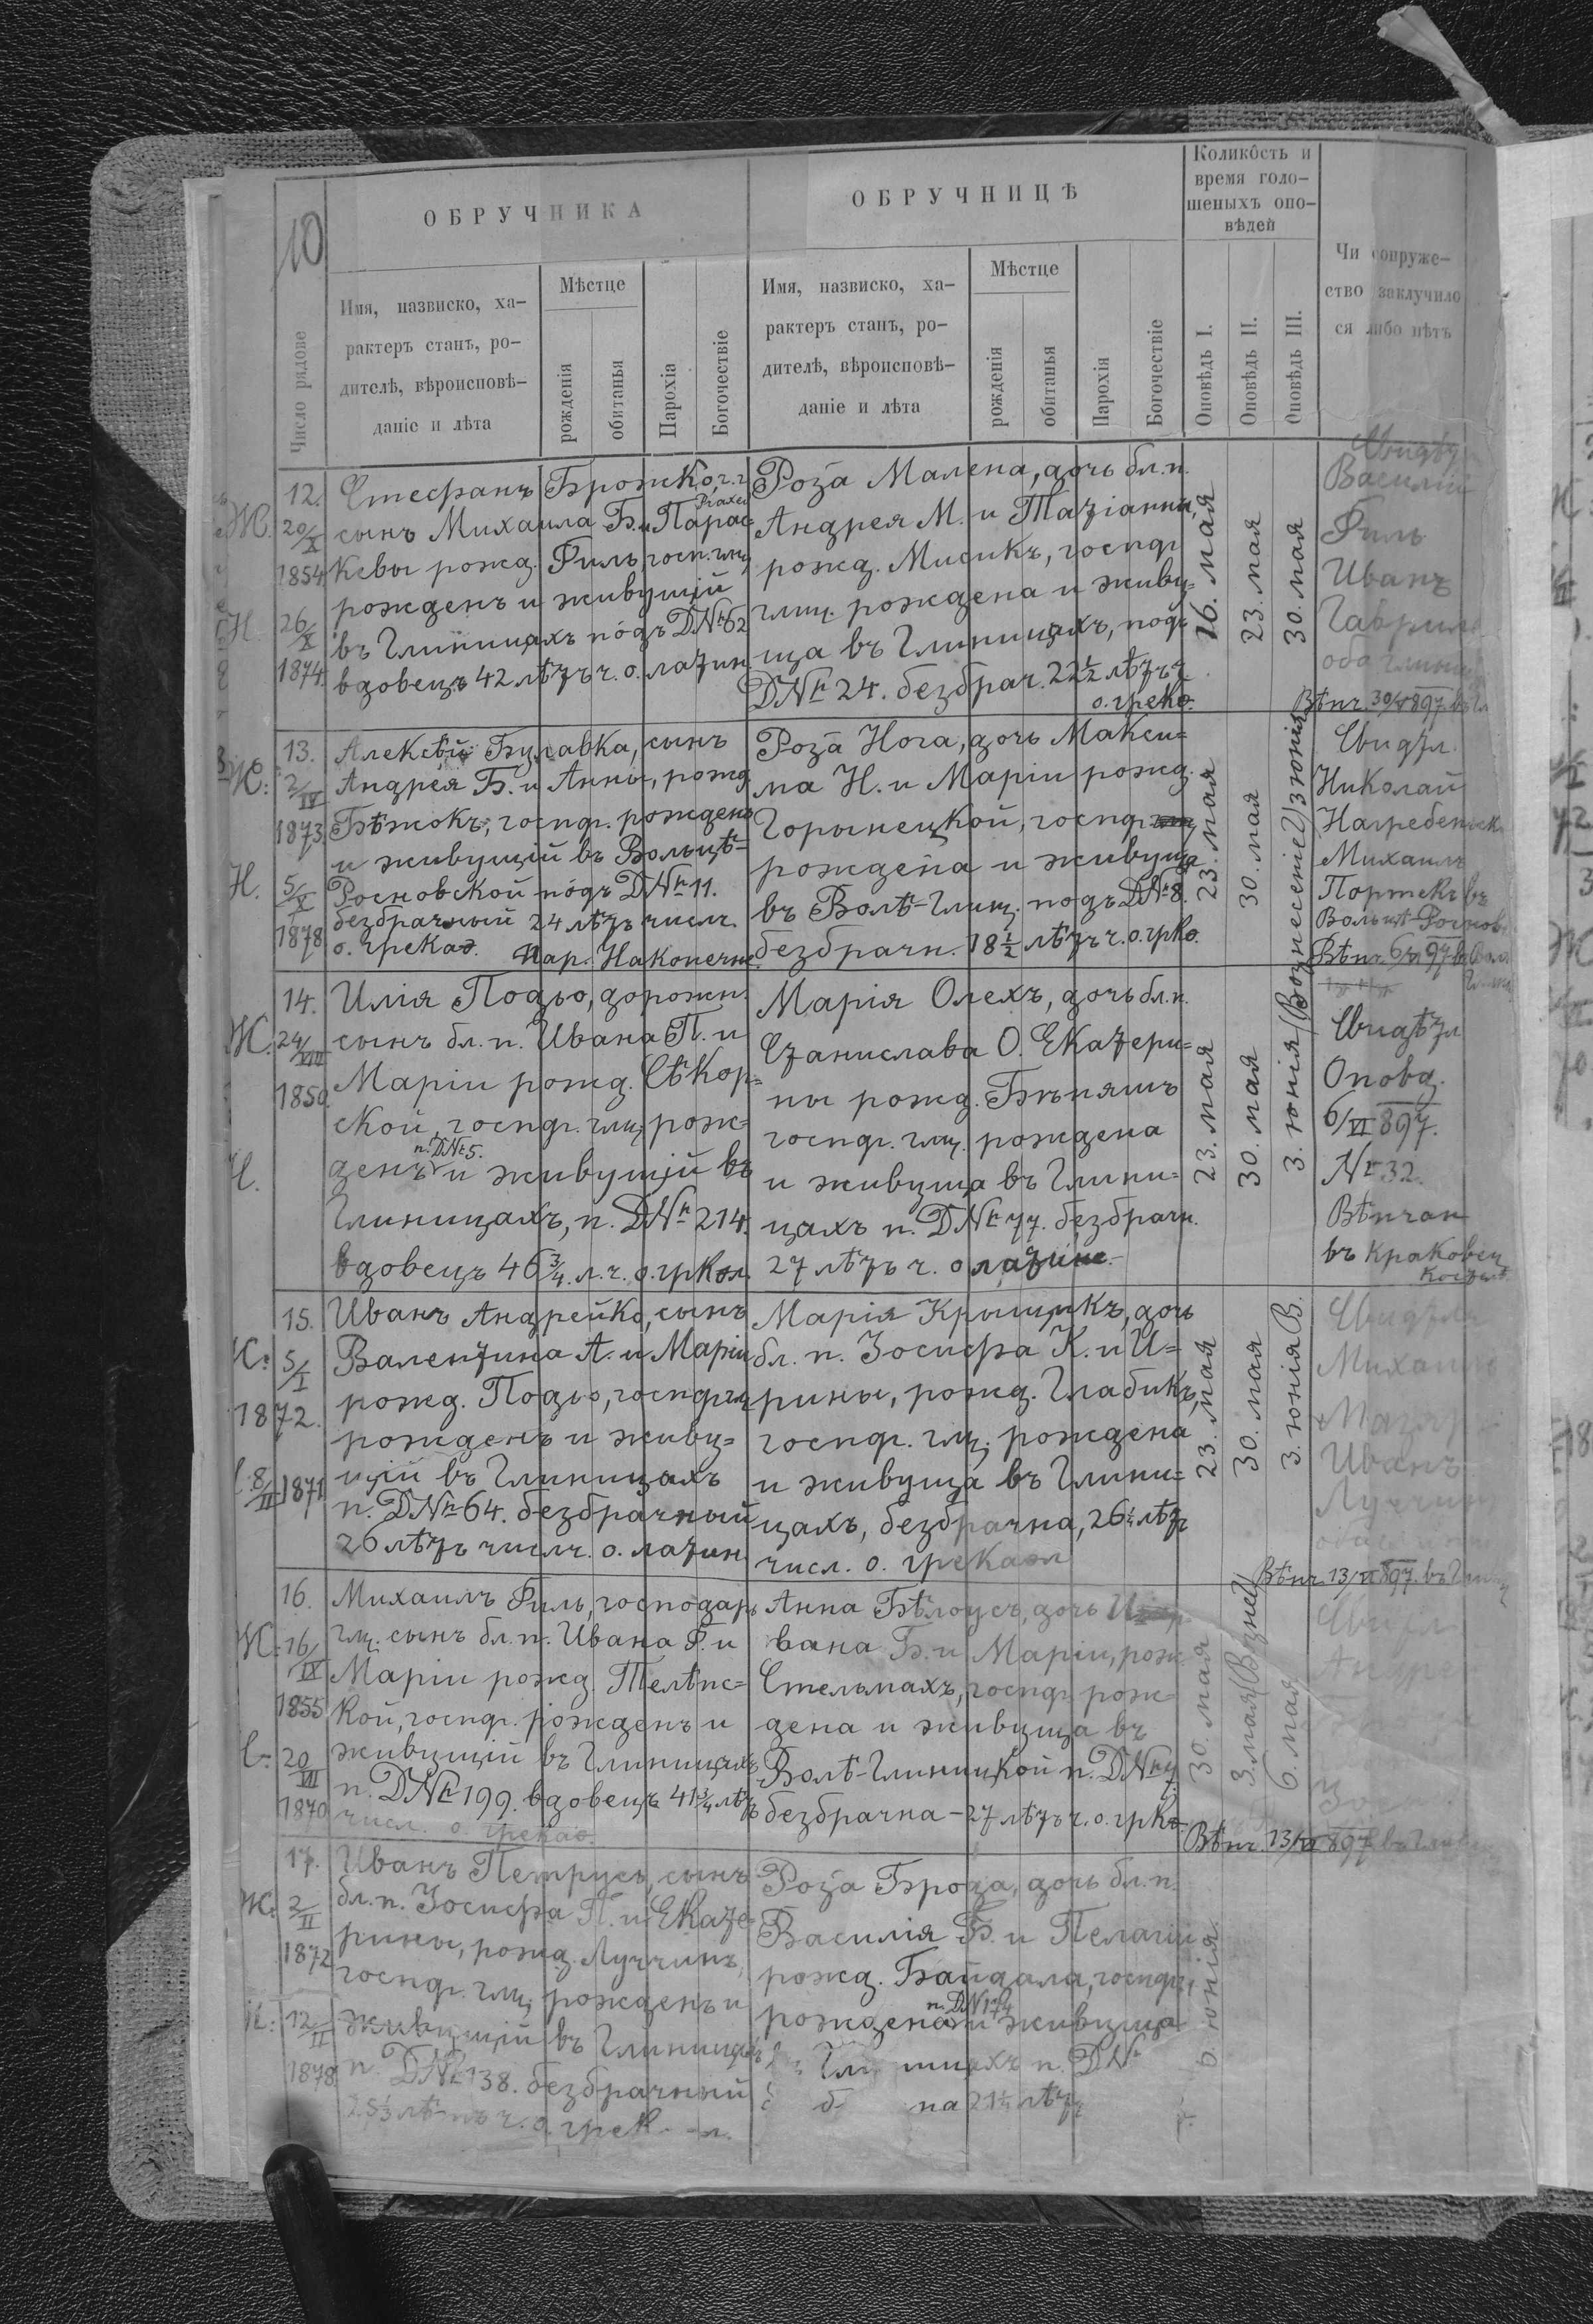 10
ОБРУЧНИКА
ОБРУЧНИЦѢ
Количôсть и
время голо-
шеныхъ опо-
вѣдей
Чи сопруже-
ство заклучило
ся либо нѣтъ
Число рядове
Имя, назвиско, ха-
рактеръ станъ, ро-
дителѣ, вѣроисповѣ-
даніе и лѣта
Мѣстце
рожденія
обитанья
Парохія
Богочестіе
Имя, назвиско, ха-
рактеръ станъ, ро-
дителѣ, вѣроисповѣ-
даніе и лѣта
Мѣстце
рожденія
обитанья
Парохія
Богочестіе
Оповѣдь I.
Оповѣдь II.
Оповѣдь III.
12.
Ж. 20/X
1854
Н. 26/X
1874.
Стефанъ Брожко,
сынъ Михаила Б. и Парас=
кевы рожд. Филь, госп. глц.
рожденъ и живущій
въ Глиницахъ подъ DNr 62
вдовецъ 42 лѣтъ ч. о. латин.
Роза Малена, дочь бл. п.
Андрея М. и Татіанны,
рожд. Мисикъ, господ.
глц. рождена и живу=
ща въ Глиницахъ, подъ
DNr 24. безбрач. 22 1/2 лѣтъ ч.
о. греко.
16. мая
23. мая
30. мая
Василій
Филь
Иванъ
Гаврил
оба
Вѣнч. 30/V 897
13.
Ж: 2/IV
1873.
Н. 5/X
1878
Алексѣй Булавка, сынъ
Андрея Б. и Анны, рожд.
Бѣжокъ, господ. рожденъ
и живущій въ Вольцѣ-
Росновской подъ DNr 11.
безбрачный 24 лѣтъ числ.
о. грекаѳ. пар. Наконечне.
Роза Нога, дочь Макси=
ма Н. и Маріи рожд.
Горынецкой, господ.
рождена и живуща
въ Волѣ-Глин. подъ DNr 8.
безбрачн. 18 1/2 лѣтъ ч. о. грко.
23. мая
30. мая
3 юнія
Свидѣт.
Николай
Нагребецьк.
Михаилъ
Портекъ въ
Вольцѣ-Роснов.
Вѣнч. 6/VI 97
14.
Ж. 24/VIII
1850.
Н.
Илія Подьо, дорожн.
сынъ бл. п. Ивана П. и
Маріи рожд. Сѣкор=
ской, господ. глц. рож=
п. DNr 5.
денъ и живущій въ
Глиницахъ, п. DNr 214.
вдовецъ 46 3/4. л. ч. о. гркол.
Марія Олехъ, дочь бл. п.
Станислава О. Екатери=
ны рожд.
господ. глц. рождена
и живуща въ Глини=
цахъ п. DNr 77. безбрачн.
27 лѣтъ ч. о латинс.
23. мая
30. мая
3. юнія (Вознесеніе)
Свидѣт
Оповѣд.
6/VI 897.
Nr 32.
Вѣнчан
въ Краковец
Костел.
15.
Ж: 5/I
1872.
С. 8/II 1871
Иванъ Андрейко, сынъ
Валентина А. и Маріи
рожд. Подьо, господ. глц
рожденъ и живу=
щій въ Глиницахъ
п. DNr 64. безбрачный
26 лѣтъ числ. о. латин.
Марія Крыщикъ, дочь
бл. п. Іосифа К. и И=
рины, рожд. Глабикъ,
господ. глц. рождена
и живуща въ Глини=
цахъ, безбрачна, 26 1/4 лѣтъ
числ. о. грекаѳл
23. мая
30. мая
3. юнія В.
Свидѣт.
Михаилъ
Мазур
Иванъ
Луччин
Вѣнч. 13/VI 897. въ Глиниц
16.
Ж: 16/IX
1855
С- 20/VII
1870
Михаилъ Филь, господарь
глц. сынъ бл. п. Ивана Ф. и
Маріи рожд. Телѣпс=
кой, господ. рожденъ и
живущій въ Глиницахъ
п. DNr 199. вдовецъ 41 3/4 лѣтъ
числ. о. грекаѳ.
Анна Бѣлоусъ, дочь И
вана Б. и Маріи, рож.
Стельмахъ, господ. рож=
дена и живуща въ
Волѣ-Глиницкой п. DNr 4.
безбрачна - 27 лѣтъ ч. о. грко.
30. мая
3. мая (Вznec)
6. мая
Свидѣт.
Андре
Вѣнч. 13/VI 897 въ Глин
17.
Ж: 2/II
1872
Н: 12/II
1878
Иванъ Петрусь, сынъ
бл. п. Іосифа П. и Екате=
рины, рожд. Луччинъ,
господ. глц. рожденъ и
живущій въ Глиницахъ
п. DNr 138. безбрачный
25 1/3 лѣтъ ч. о. грек
Роза Брода, дочь бл. п.
Василія Б. и Пелагіи
рожд. Байдала, господ.
п. DN 174
рождена и живуща
Глиницахъ п. DNr
на 21 1/4 лѣтъ
6. юнія